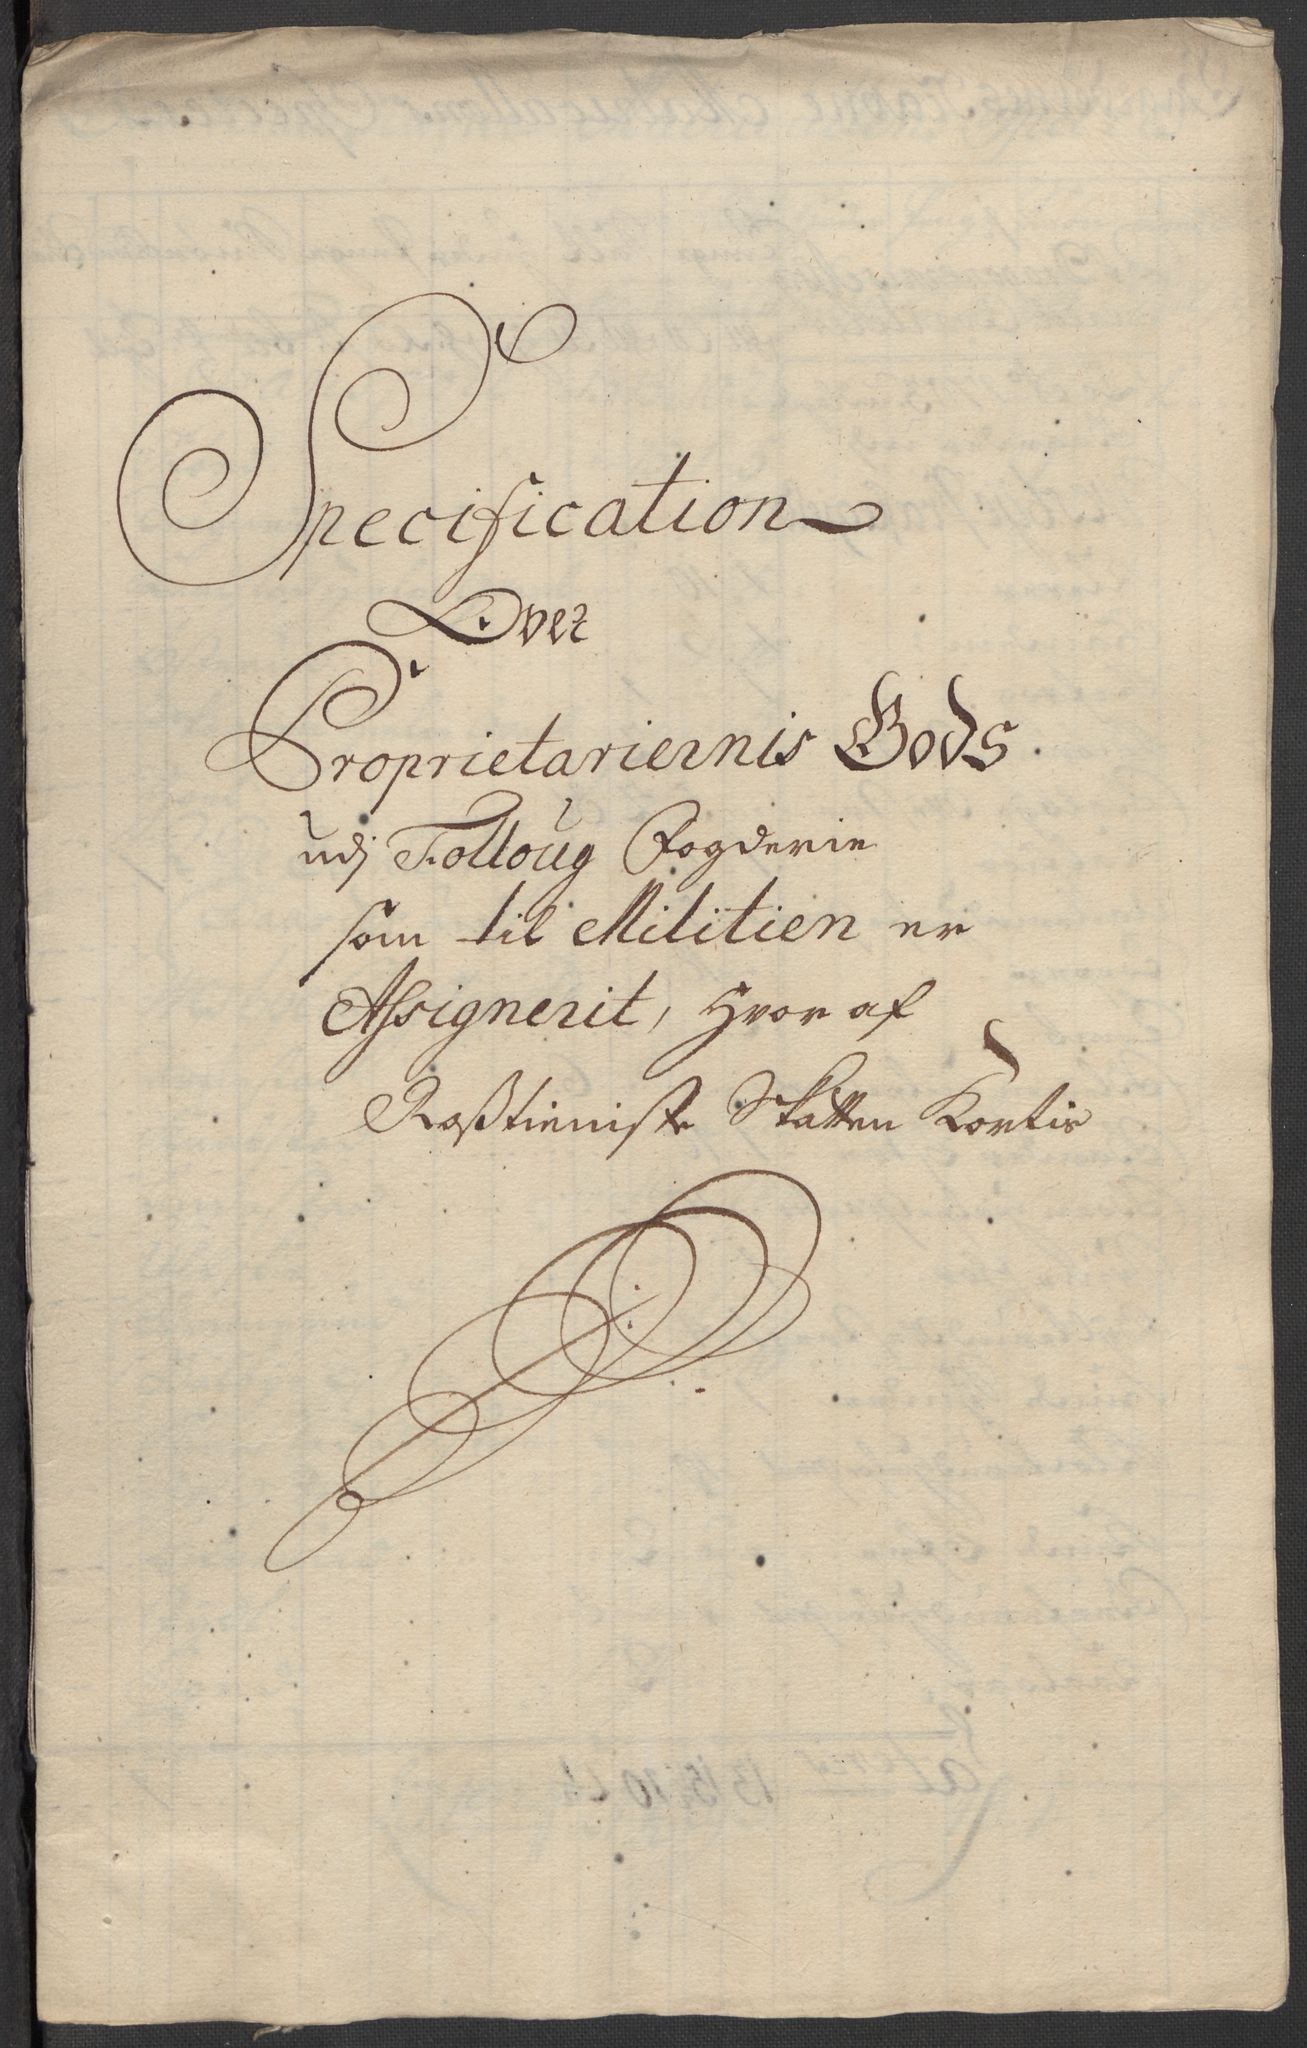 Specification
Over
Proprietariernis Gods
udj Folloug Fogderie
som til Militien er
Assignerit, hvor af
Roßtieniste Skatten Kortis